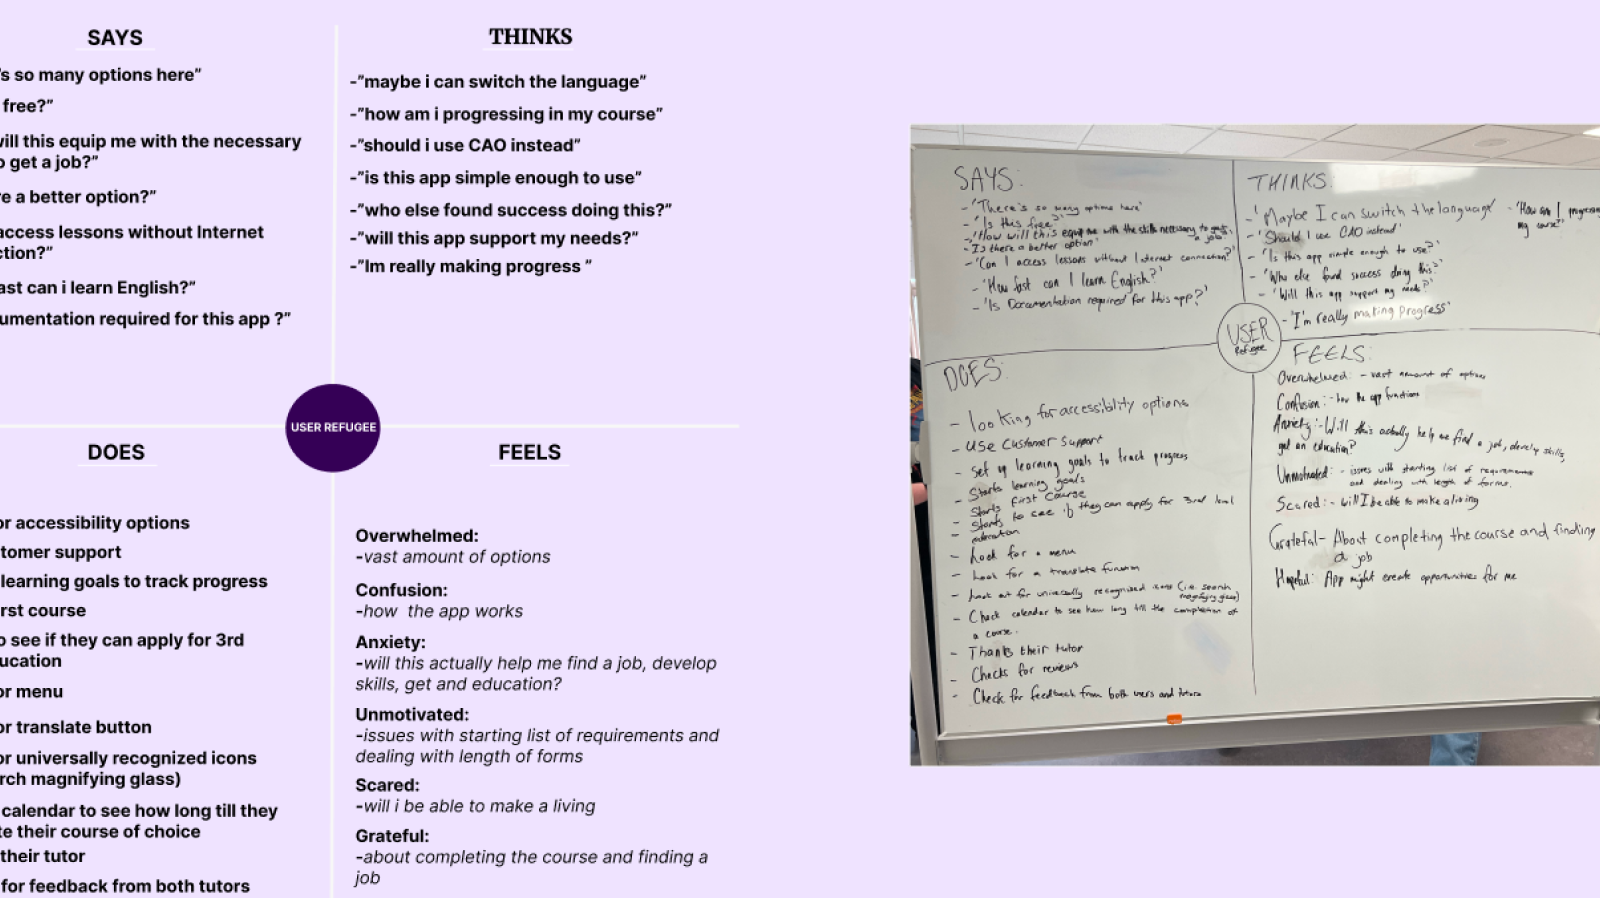 SAYS
's so many options here”
free?”
will this equip me with the necessary
o get a job?”
re a better option?”
access lessons without Internet
ction?”
ast can i learn English?”
umentation required for this app ?”
THINKS
-”maybe i can switch the language”
-”how am i progressing in my course”
-”should i use CAO instead”
-”is this app simple enough to use”
-”who else found success doing this?”
-”will this app support my needs?”
-”Im really making progress ”
USER REFUGEE
DOES
or accessibility options
tomer support
learning goals to track progress
irst course
o see if they can apply for 3rd
ucation
or menu
or translate button
or universally recognized icons
rch magnifying glass)
calendar to see how long till they
te their course of choice
their tutor
for feedback from both tutors
FEELS
Overwhelmed:
-vast amount of options
Confusion:
-how the app works
Anxiety:
-will this actually help me find a job, develop
skills, get and education?
Unmotivated:
-issues with starting list of requirements and
dealing with length of forms
Scared:
-will i be able to make a living
Grateful:
-about completing the course and finding a
job
SAYS:
- 'There's so many options here'
- 'Is this free?'
- 'How will this equip me with the skills necessary to get
a job?'
- 'Is there a better option'
- 'Can I access lessons without Internet connection?'
- 'How fast can I learn English?'
- 'Is Documentation required for this app?'
THINKS
- 'Maybe I can switch the language'
- 'How am I progressing
my course'
- 'Should I use CAO instead'
- 'Is this app simple enough to use?'
- 'Who else found success doing this?'
- 'Will this app support my needs?'
- 'I'm really making progress'
USER
Refugee
DOES:
- looking for accessibility options
- Use Customer support
- set up learning goals to track progress
- Starts learning goals
- Starts first course
- Starts to see if they can apply for 3rd level
education
- Look for a menu
- Look for a translate function
- Look out for universally recognized icons (i.e. search
magnifying glass)
- Check calendar to see how long till the completion of
a course.
- Thanks their tutor
- Checks for reviews
- Check for feedback from both users and tutors
FEELS:
Overwhelmed: - vast amount of options
Confusion: - how the app functions
Anxiety: - Will this actually help me find a job, develop skills,
get an education?
Unmotivated: - issues with starting list of requirements
and dealing with length of forms.
Scared: - will I be able to make a living
Grateful - About completing the course and finding
a job
Hopeful: App might create opportunities for me